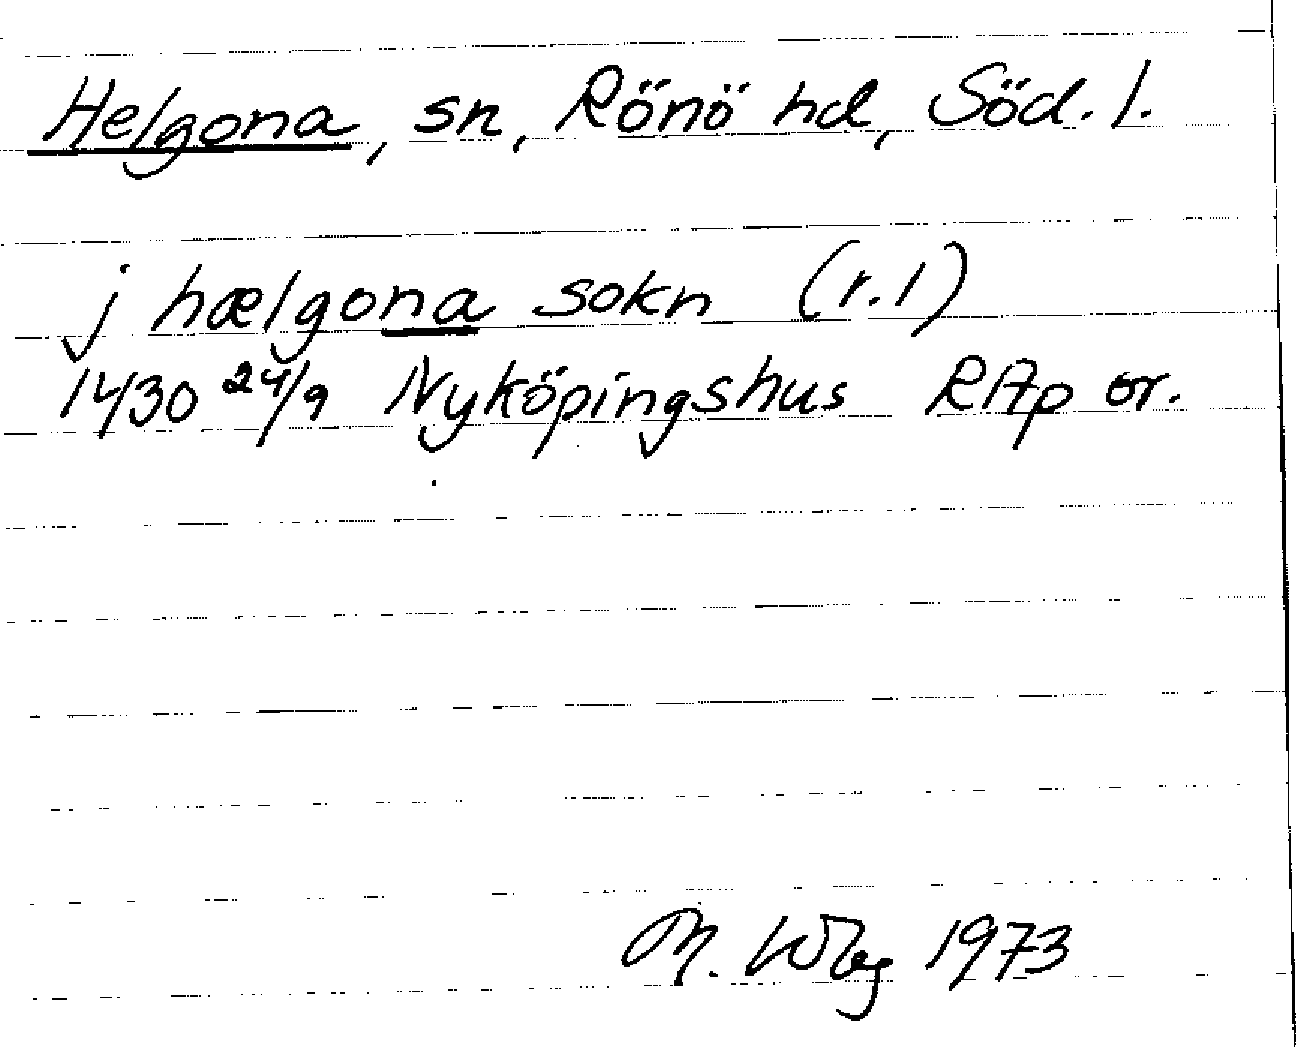 Helgona, sn, Rönö hd, Söd. l.
j hælgona sokn (r. 1)
1430 24/9 Nyköpingshus RAp or.
M. 1973